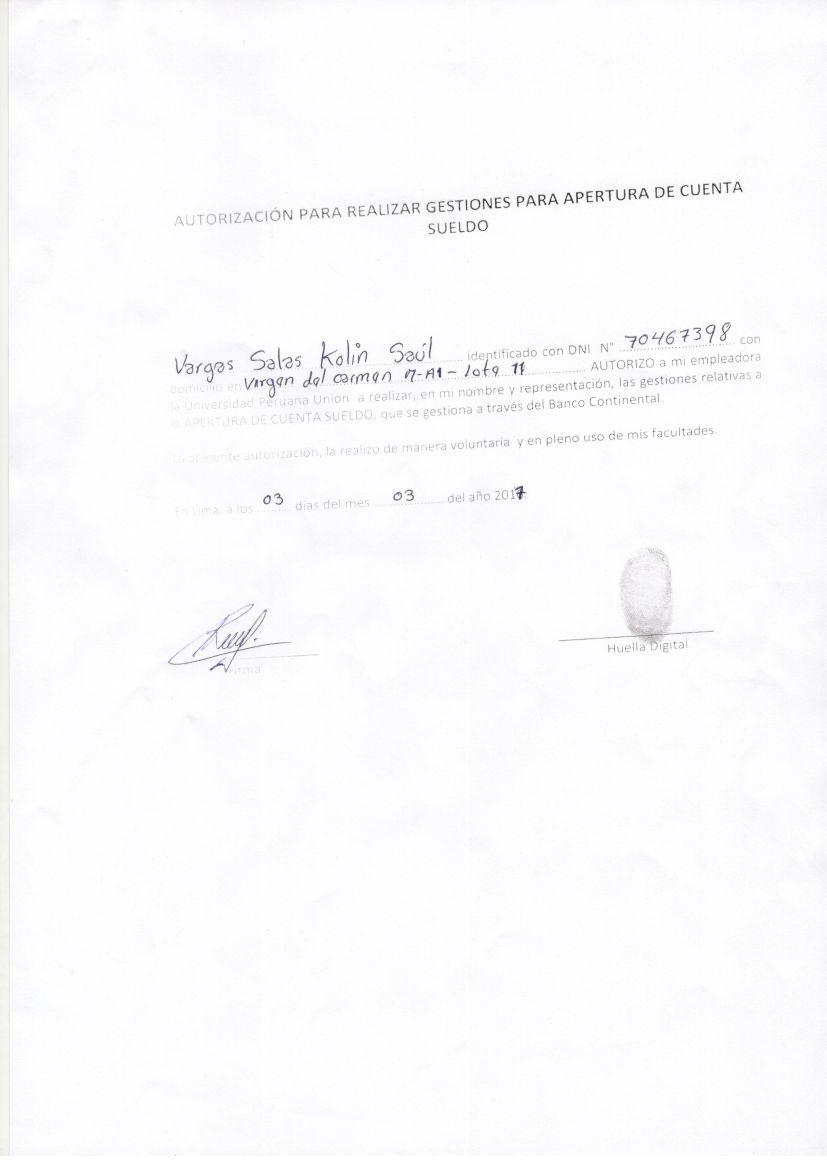 AUTORIZACIÓN PARA REALIZAR GESTIONES PARA APERTURA DE CUENTA
SUELDO
Vargas Salas Kolin Saúl ........ identificado con DNI N° 70467398 con
domicilio en Virgen del Carmen M-A1 - lote 11 ................ AUTORIZO a mi empleadora
la Universidad Peruana Unión a realizar, en mi nombre y representación, las gestiones relativas a
la APERTURA DE CUENTA SUELDO, que se gestiona a través del Banco Continental.
La presente autorización, la realizo de manera voluntaria y en pleno uso de mis facultades.
En Lima, a los 03 días del mes 03 del año 2017
Firma
Huella Digital